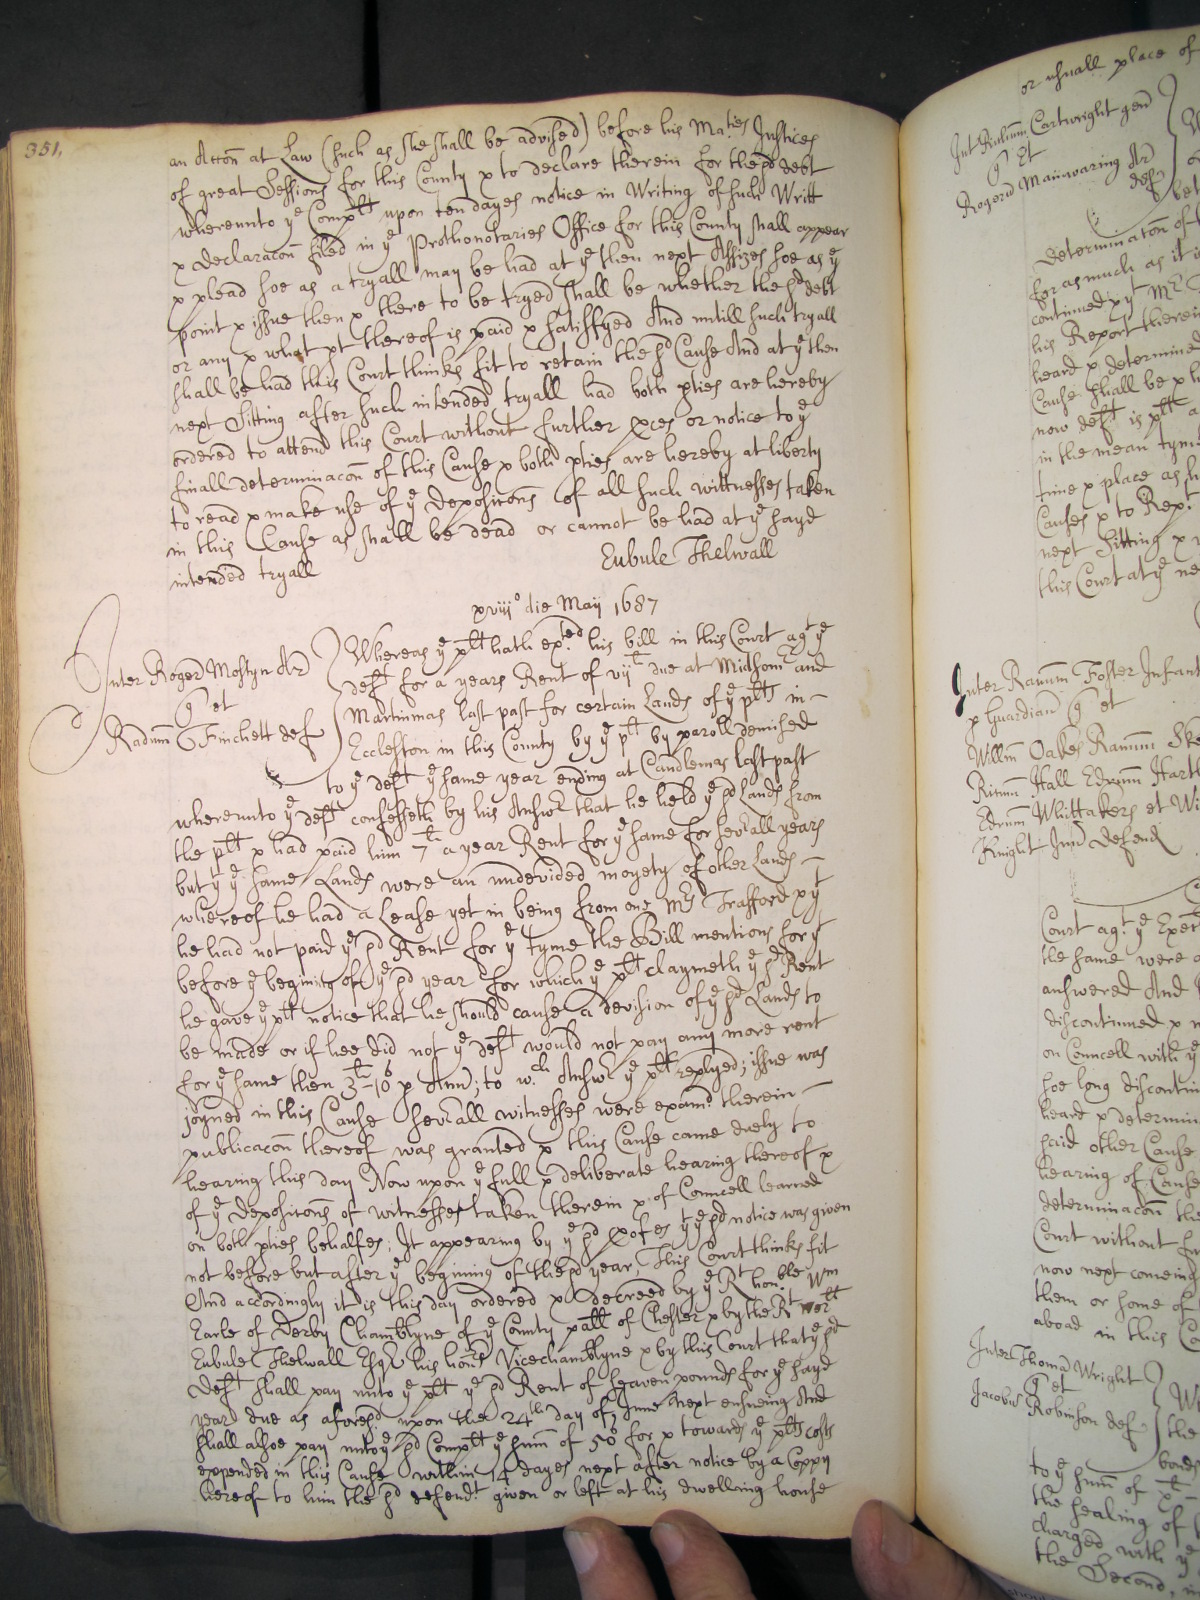 351.
an Accōn at Law (such as she shall be advised) before his Maties Justices
of great Sessions for this County & to declare therein for the sd debt
whereunto ye Complt upon ten dayes notice in Writing of such Writt
& declaracōn filed in ye Prothonotaries Office for this County shall appear
& plead soe as a tryall may be had at ye then next Assizes soe as ye
point & issue then & there to be tryed shall be whether the sd debt
or any & what pt thereof is paid & satisfyed And untill such tryall
shall be had this Court thinks fit to retain the sd Cause And at ye then
next Sitting after such intended tryall had both pties are hereby
ordered to attend this Court without further pces or notice to ye
finall determinacōn of this Cause & both pties are hereby at liberty
to read & make use of ye deposicōns of all such wittnesses taken
in this Cause as shall be dead or cannot be had at ye sayd
intended tryall
Eubule Thelwall
xviijo die Maij 1687
Inter Rogerū Mostyn Ar
Q et
Radum Finchett def
Whereas ye plt hath exted his bill in this Court agt ye
deft for a years Rent of vijl due at Midsomr and
Martinmas last past for certain Lands of ye plts in
Eccleston in this County by ye plt by paroll demised
to ye deft ye same year ending at Candlemas last past
whereunto ye deft confesseth by his Answr that he held ye sd Lands from
the plt & had paid him 7l a year Rent for ye same for sevrall years
but yt ye same Lands were an undevided moyety of other Lands
whereof he had a Lease yet in being from one Mrs Trafford & yt
he had not paid ye sd Rent for ye tyme the Bill mentions for yt
before ye begining of ye sd year for which ye plt claymeth ye sd Rent
he gave ye plt notice that he should cause a devision of ye sd Lands to
be made or if hee did not ye deft would not pay any more rent
for ye same then 3l-10s p Ann; to wch Answr ye plt replyed; issue was
joyned in this Cause sevrall witnesses were examd therein
publicacōn thereof was granted & this Cause came duely to
hearing this day Now upon ye full & deliberate hearing thereof &
of ye deposicōns of witnesses taken therein & of Councell learned
on both pties behalfes; It appearing by ye sd pofes yt ye sd notice was given
not before but after ye begining of the sd year, This Court thinks fit
And accordingly it is this day ordered & decreed by ye Rt honble Wm
Earle of Derby Chamblyne of ye County pall of Chester & by the Rt worll
Eubule Thelwall Esqr his honrs Vicechamblyne & by this Court that ye sd
deft shall pay unto ye plt ye sd Rent of seaven pounds for ye sayd
year due as aforesd upon the 24th day of June next ensueing And
shall alsoe pay unto ye sd Complt ye sum of 50s for & towards ye plts costs
expended in this Cause within 14 dayes next after notice by a Coppy
hereof to him the sd defendt given or left at his dwelling house
or usuall place of
Int Radum Cartwright gen
Q Et
Rogerū Mainwaring Ar
def
determinacōn of
for as much as it
continued yt Mr
his Report therein
heard & determined
Cause shall be
now deft is plt
in the mean tyme
time & place as
Causes & to Rept
next Sitting &
this Court at ye
Inter Raum Foster Infant
p Guardian Q et
Willm Oakes
Hall Edrum
Edrum Whittakers et
Knight Junr Defend
Court agt ye
the same were
answered And
discontinued &
on Councell with ye
soe long
heard & determin
said other Cause
hearing of Cause
determinacōn the
Court without
now next comeing
them or some of
aboad in this
Inter Thomā Wright
Q et
Jacobū Robinson def
the
bonds
to ye sum of
the sealing of
charged with ye
the Second,